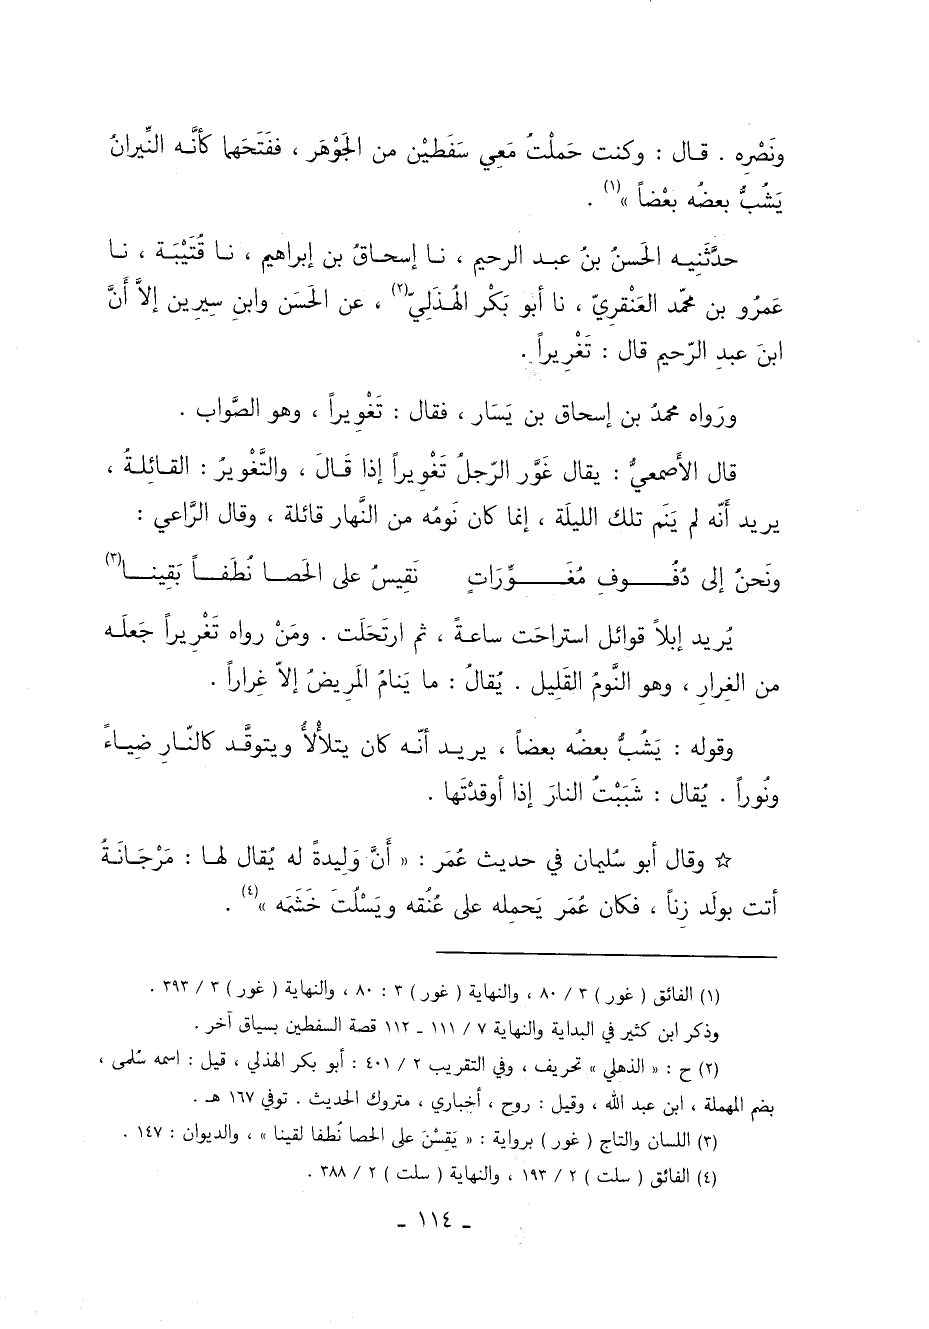 ونَصْره . قال : وكنت حَملْتُ مَعي سَفَطيْن من الجَوْهَر ، ففَتَحَها كأنَّه النِّيرانُ
يَشُبُّ بعضُه بعْضاً »(١) .
حدَّثَنِيه الحَسنُ بنُ عبد الرحيم ، نا إسحاقُ بن إبراهيم ، نا قُتَيْبَة ، نا
عَمرُو بن محمّد العَنْقريّ ، نا أبو بَكْر الهُذَليّ(٢) ، عن الحَسَن وابنِ سيِرين إلاَّ أنَّ
ابنَ عبد الرّحيم قال : تَغْريراً .
ورَواه محمدُ بن إسحاق بن يَسَار ، فقال : تَغْويراً ، وهو الصَّواب .
قال الأَصمعيُّ : يقال غَوَّر الرّجلُ تَغْويراً إذا قَالَ ، والتَّغْويرُ : القائِلةُ ،
يريد أنّه لم يَنَم تلك الليلَة ، إنما كان نَومُه من النَّهار قائلة ، وقال الرَّاعي :
ونَحنُ إلى دُفُوفِ مُغَوِّرَاتٍ نَقِيسُ على الحَصا نُطَفاً بَقِينا(٣)
يُريد إبلاً قوائل استراحَت ساعةً ، ثم ارتَحَلَت . ومَنْ رواه تَغْريراً جَعلَه
من الغِرار ، وهو النَّومُ القَلِيل . يُقالُ : ما يَنامُ المَريضُ إلاّ غِراراً .
وقوله : يَشُبُّ بعضُه بعضاً ، يريد أنّه كان يتلألأُ ويتوقَّد كالنّارِ ضِياءً
ونُوراً . يُقال : شَبَبْتُ النارَ إذا أوقدْتَها .
☆ وقال أبو سُليمان في حديث عُمَر : « أَنَّ وَلِيدةً له يُقال لها : مَرْجَانَةُ
أتت بولَد زِناً ، فكان عُمَر يَحمله على عُنُقه ويَسْلُتَ خَشَمَه »(٤) .
(١) الفائق ( غور ) ٣ / ٨٠ ، والنهاية ( غور ) ٣ : ٨٠ ، والنهاية ( غور ) ٣ / ٣٩٣ .
وذكر ابن كثير في البداية والنهاية ٧ / ١١١ - ١١٢ قصة السفطين بسياق آخر .
(٢) ح : « الذهلي » تحريف ، وفي التقريب ٢ / ٤٠١ : أبو بكر الهذلي ، قيل : اسمه سُلمى ،
بضم المهملة ، ابن عبد الله ، وقيل : روح ، أخباري ، متروك الحديث . توفي ١٦٧ هـ .
(٣) اللسان والتاج ( غور ) برواية : « يَقِسْنَ على الحصا نُطفا لقينا » ، والديوان : ١٤٧ .
(٤) الفائق ( سلت ) ٢ / ١٩٣ ، والنهاية ( سلت ) ٢ / ٣٨٨ .
- ١١٤ -